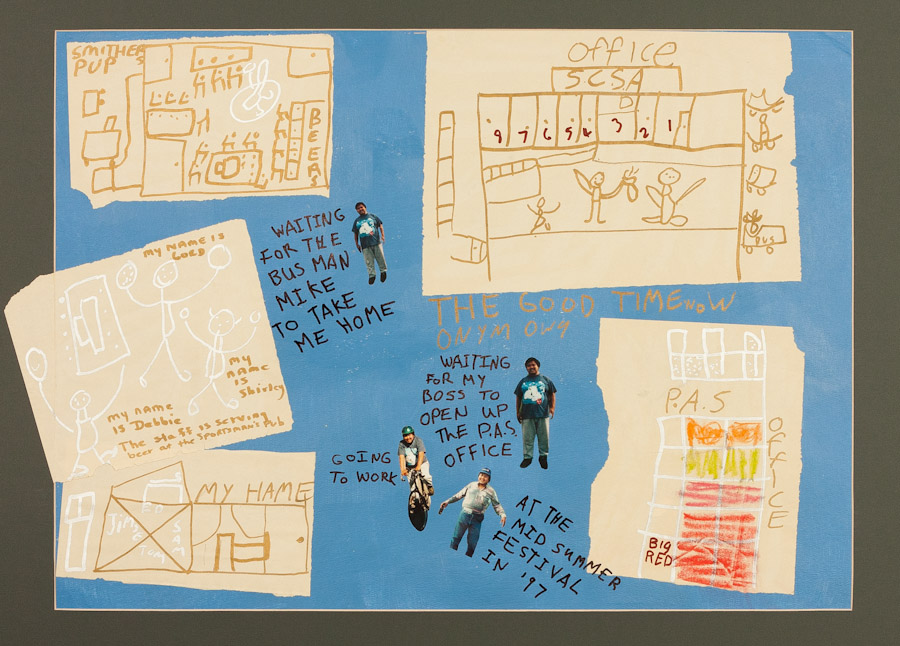 SMITHERS
PUP
BEERS
OFFICE
SCSA
D
8 7 6 5 4 3 2 1
BUS
WAITING
FOR THE
BUS MAN
MIKE
TO TAKE
ME HOME
MY NAME IS
GORD
my
NAME
is
Shirley
my NAME
is Debbie
The staff is serving
beer at the SPORTSMAN'S Pub
THE GOOD TIME NOW
ONYM OWY
WAITING
FOR MY
BOSS TO
OPEN UP
THE P.A.S.
OFFICE
GOING
TO WORK
AT THE
MID SUMMER
FESTIVAL
IN '97
P.A.S
OFFICE
BIG
RED
MY HAME
ED
Jim
SAM